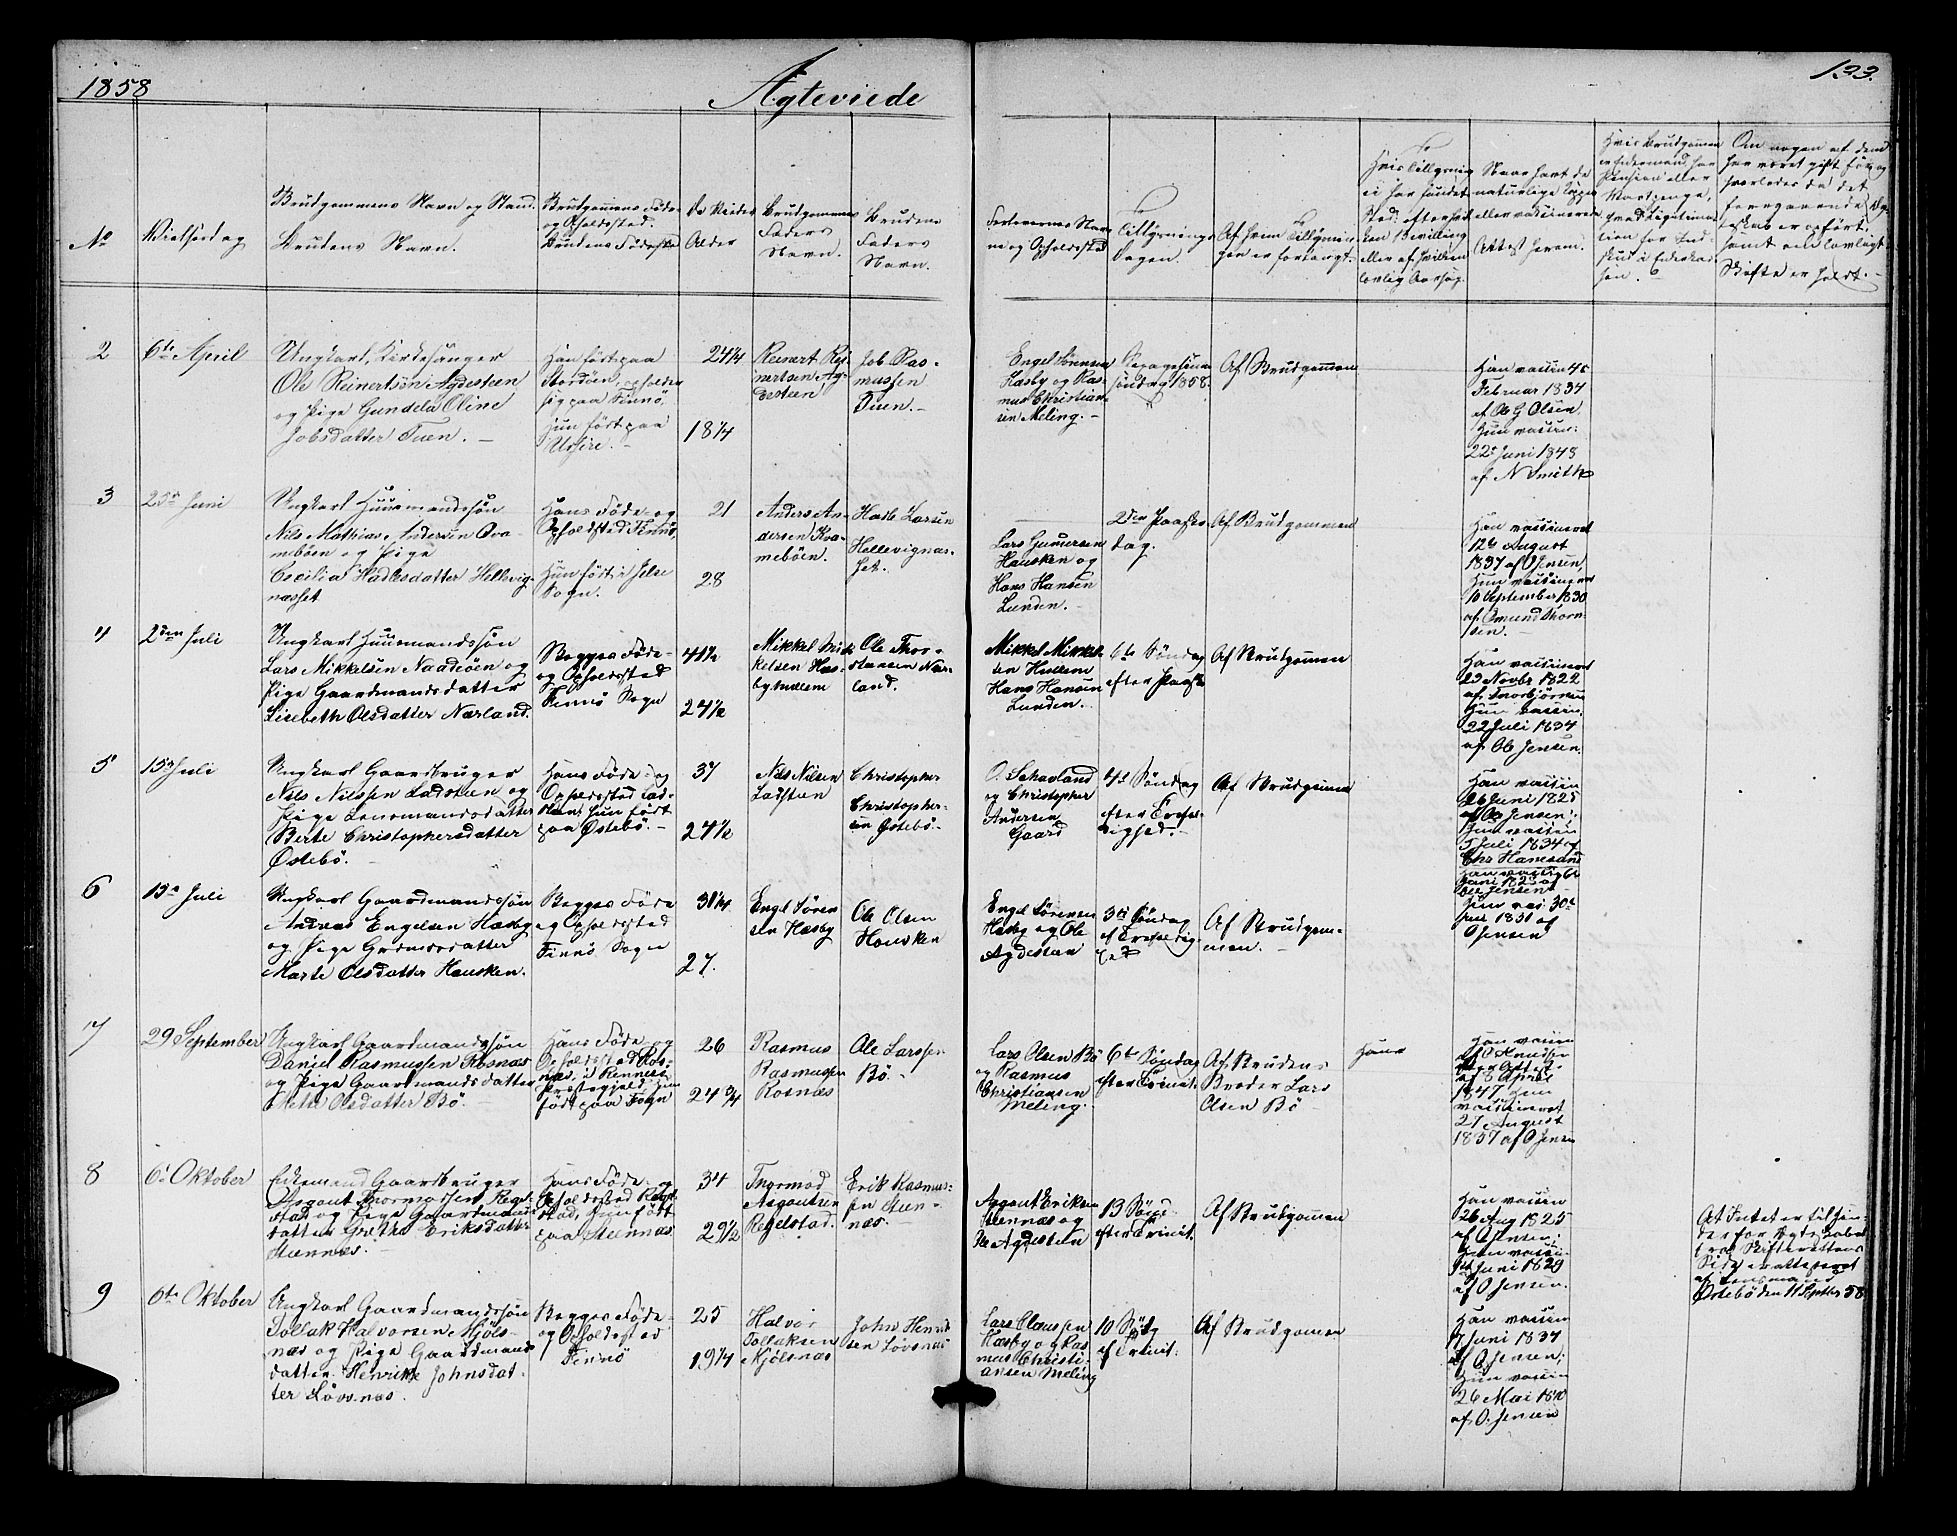 1858
Ægteviede
133.
No
Vielsesdag
Brudgommens Navn og Stand.
Brudens Navn.
Brudgommens Føde-
og Opholdssted.
Brudens Fødested
De Viedes
Alder
Brudgommens
Faders
Navn.
Brudens
Faders
Navn.
Forlovernes Nav
ne og Opholdssted
Tillysnings
dagen.
Af hvem Tillysnin-
gen er forlangt.
Hvis Tillysning
ei har fundet
Sted: efter hvil
ken Bevilling
eller af hvilken
lovlig Aarsag.
Naar havt de
naturlige Kopper
eller vaccineret
Attest herom.
Hvis Brudgommen
er Enkemand, har
Pension eller
Vartpenge,
Om nogen af dem
har været gift før og
hvorledes da det
foregaaende Æg-
teskab er ophørt,
samt om lovligt
Skifte er holdt.
2
6te April
Ungkarl, Kirkesanger
Ole Reinertsen Agdesteen
og Pige Gundela Oline
Jobsdatter Tuen.
Han født paa
Stordøen, opholder
sig paa Finnø
Hun født paa
Utsire.
24 1/4
18 1/4
Reinert Rei
nertsen Ag-
desteen
Job Ras-
mussen
Tuen.
Engel Sørensen
Hæsby og Ras-
mus Christian-
sen Meling.
Septuagesima
Søndag 1858.
Af Brudgommen
Han vaccin 4de
Februar 1834
af Ole G Olsen
Hun vaccin:
22de Juni 1848
af N Smith
3
25de Juni
Ungkarl Huusmandssøn
Nils Mathias Andersen Qva-
mebøen og Pige
Cecilia Hadlesdatter Hellevig-
næsset
Hans Føde- og
Opholdssted Finnø.
Hun født i Jelse
Sogn.
21
28
Anders An-
dersen Kva-
mebøen.
Hadle Larsen
Hellevignæs-
set.
Lars Gunnarsen
Hausken og
Hans Hansen
Lunden.
2den Paaske-
dag.
Af Brudgommen
Han vaccineret
12te August
1837 af O Jensen
Hun vaccineret
10 September 1830
af Omund Thorn-
sen.
4
2den Juli
Ungkarl Huusmandssøn
Lars Mikkelsen Naadeøen og
Pige Gaardmandsdatter
Lisebeth Olsdatter Nærland.
Begges Føde-
og Opholdssted
Finnø Sogn
41 1/2
24 1/2
Mikkel Mik
kelsen Hæs-
byhullem
Ole Thor-
stensen Nær-
land.
Mikkel Mikkel-
sen Hullem
Hans Hansen
Lunden.
6te Søndag
efter Paaske
Af Brudgommen
Han vaccineret
29 Novbr 1822
af Thorbjørnsen
Hun vaccin.
22 Juli 1834
af Ole Jensen.
5
15de Juli
Ungkarl Gaardbruger
Nils Nilsen Ladsteen og
Pige Lensmandsdatter
Berte Christophersdatter
Østebø.
Hans Føde- og
Opholdssted Lad-
steen, Hun født
paa Østebø.
37
24 1/2
Nils Nilsen
Ladsteen
Christopher
Christopher-
sen Østebø.
O. Schavland
og Christopher
Andersen
Gaard
4de Søndag
efter Trefol-
dighed.
Af Brudgommen
Han vaccin
26 Juni 1825
af Ole Jensen;
Hun vaccin
5 Juli 1834 af
Chr Hanesand
6
15de Juli
Ungkarl Gaardmandssøn
Andreas Engelsen Hæsby
og Pige Gaardmandsdatter
Marte Olsdatter Hausken.
Begges Føde
og Opholdssted
Finnø Sogn
31 1/4
27.
Engel Søren
sen Hæsby
Ole Olsen
Hausken
Engel Sørensen
Hæsby og Ole
Agdesteen
3die Søndag
ef Trefoldig-
hed
Af Brudgom-
men.
Han vaccin 6te
Juni 1825 af
Ole Jensen
Hun vac 30te
Juni 1831 af
O Jensen
7
29 September
Ungkarl Gaardmandssøn
Daniel Rasmussen Rosnæs
og Pige Gaardmandsdatter
Olsdatter Bø.
Hans Føde og
Opholdssted Ros-
næs, i Rennesø
Præstegjeld. Hun
født paa Fogn
26
24 3/4
Rasmus
Rasmussen
Rosnæs
Ole Larssen
Bø.
Lars Olsen Bø
og Rasmus
Christiansen
Meling.
6te Søndag
efter Trinit.
Af Brudens
Broder Lars
Olsen Bø
Han vaccin
af O Knudsen
Attest
af 8 April
1847. Hun
vaccineret
27 August
1837 af O Jensen
8
6te Oktober
Enkemand Gaardbruger
Asgaut Thormodsen Regel-
stad og Pige Gaardmands-
datter Grethe Eriksdatter
Steennæs.
Hans Føde- og
Opholdssted Regel-
stad, Hun født
paa Steennæs
34
29 1/2
Thormod
Asgautsen
Regelstad.
Erik Rasmus-
sen Steen-
næs.
Asgaut Eriksen
Steennæs og
Ole Agdesteen
13 Sønd
efter Trinit.
Af Brudgommen
Han vaccin
26 Aug 1825
af O Jensen;
Hun vaccin
Juni 1829
af O Jensen.
At Intet er til Hin-
der for Ægteskabet
fra Skifterettens
Side er attesteret
af Lensmand
Østebø den 11 Septbr 58
9
6te Oktober
Ungkarl Gaardmandssøn
Tollak Halvorsen Kjøls-
næs og Pige Gaardmands
datter Henrikke Johnsdat-
ter Løvsnæs.
Begges Føde-
og Opholdssted
Finnø
25
19 1/4
Halvor
Tollaksen
Kjølsnæs
John Henrik
sen Løvsnæs
Lars Claussen
Hæsby og Ras
mus Christi-
ansen Meling
10 Sødg
ef Trinit:
Af Brudgommen
Han vaccin
7 Juni 1837
af O Jensen;
Hun vaccin
26 Mai 1840
af O. Jensen